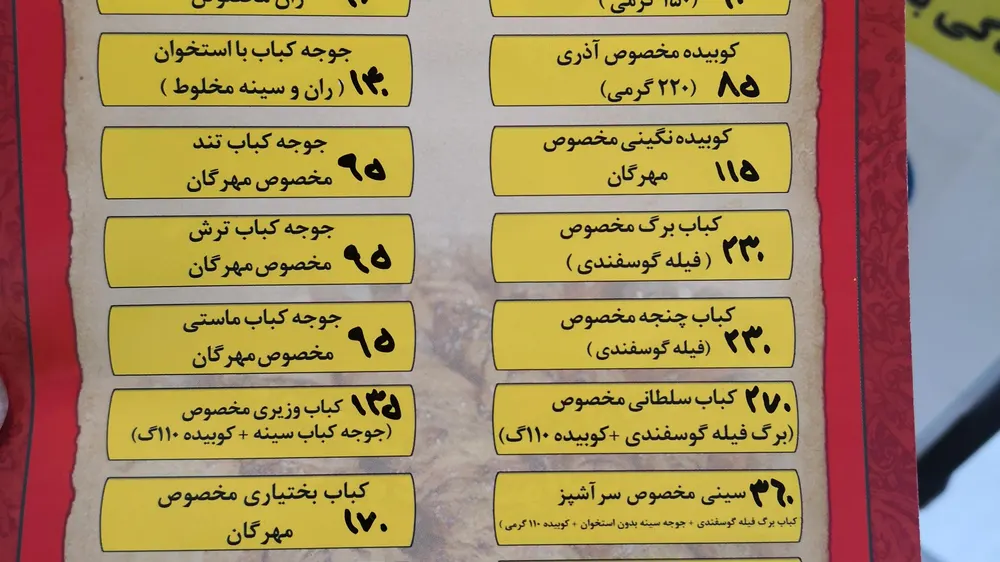 (۱۵۰ گرمی)
کوبیده مخصوص آذری
(۲۲۰ گرمی) ۸۵
کوبیده نگینی مخصوص
مهرگان ۱۱۵
کباب برگ مخصوص
( فیله گوسفندی ) ۲۳۰
کباب چنجه مخصوص
(فیله گوسفندی ) ۲۳۰
کباب سلطانی مخصوص ۲۷۰
(برگ فیله گوسفندی +کوبیده ۱۱۰گ)
سینی مخصوص سرآشپز ۳۶۰
( کباب برگ فیله گوسفندی + جوجه سینه بدون استخوان + کوبیده ۱۱۰ گرمی )
ران مخصوص
جوجه کباب با استخوان
( ران و سینه مخلوط ) ۱۳۰
جوجه کباب تند
مخصوص مهرگان ۹۵
جوجه کباب ترش
مخصوص مهرگان ۹۵
جوجه کباب ماستی
مخصوص مهرگان ۹۵
کباب وزیری مخصوص ۱۳۵
(جوجه کباب سینه + کوبیده ۱۱۰گ)
کباب بختیاری مخصوص
مهرگان ۱۷۰